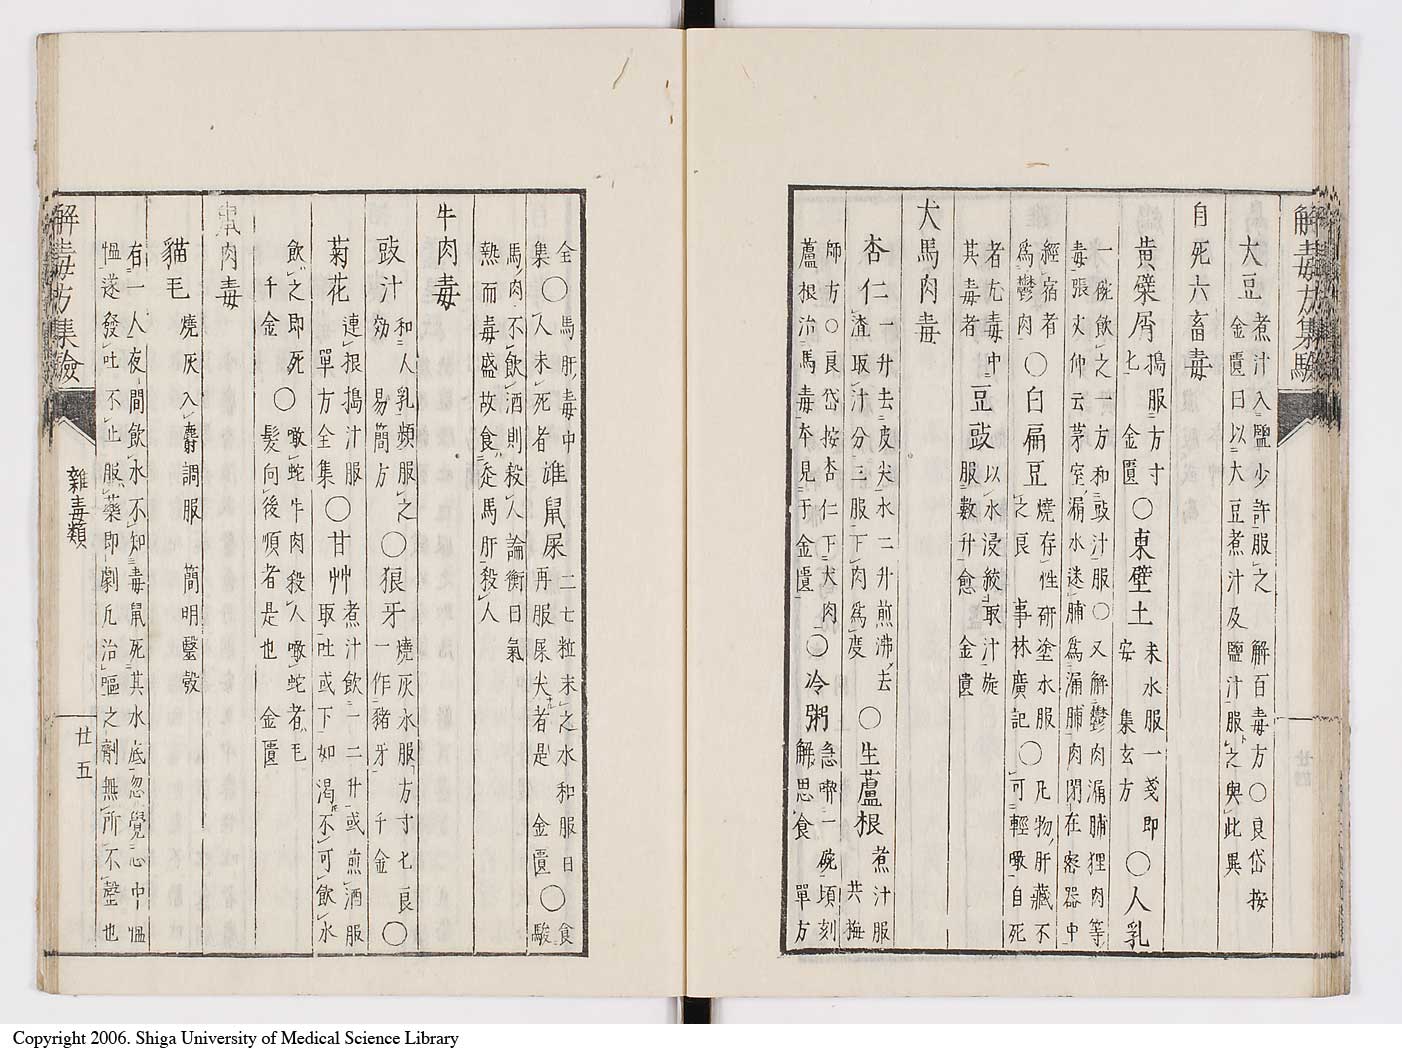 解毒方集驗
大豆 煮汁入鹽少許服之 解百毒方〇良岱按
金匱曰以大豆煮汁及鹽汁服之與此異
自死六畜毒
黄檗屑 搗服方寸〇東壁土 末水服一戔即〇人乳
匕 金匱 安 集玄方
一碗飲之一方和豉汁服〇又解鬱肉漏脯狸肉等
毒張文仲云茅室漏水迷脯爲漏脯肉閉在密器中
經宿者〇白扁豆 燒存性研塗水服〇凡物肝藏不
爲鬱肉 之良 事林廣記 可輕噉自死
者尤毒中豆豉 以水浸絞取汁旋
其毒者 服數升愈 金匱
犬馬肉毒
杏仁 一升去皮尖水二升煎沸去〇生蘆根 煮汁服
渣取汁分三服下肉爲度 共梅
師方〇良岱按杏仁下犬肉〇冷粥 急喫一碗頃刻
蘆根治馬毒本見于金匱 解思食 單方
仝〇馬肝毒中雄鼠屎 二七粒末之水和服日〇食
集 人未死者 再服屎尖者是 金匱 〇驗
馬肉不飲酒則殺人論衡曰氣
熱而毒盛故食走馬肝殺人
牛肉毒
豉汁 和人乳頻服之〇狼牙 燒灰水服方寸匕良〇
効 易簡方 一作豬牙 千金
菊花 連根搗汁服〇甘艸 煮汁飲一二升或煎酒服
單方全集 取吐或下如渴不可飲水
飲之即死〇噉蛇牛肉殺人噉蛇者毛
千金 髪向後順者是也 金匱
肉毒
貓毛 燒灰入麝調服 簡明醫彀
有一人夜間飲水不知毒鼠死其水底忽覺心中慍
慍遂發吐不止服藥即劇凡治嘔之劑無所不罄也
解毒方集驗
雜毒類
廿五
Copyright 2006. Shiga University of Medical Science Library